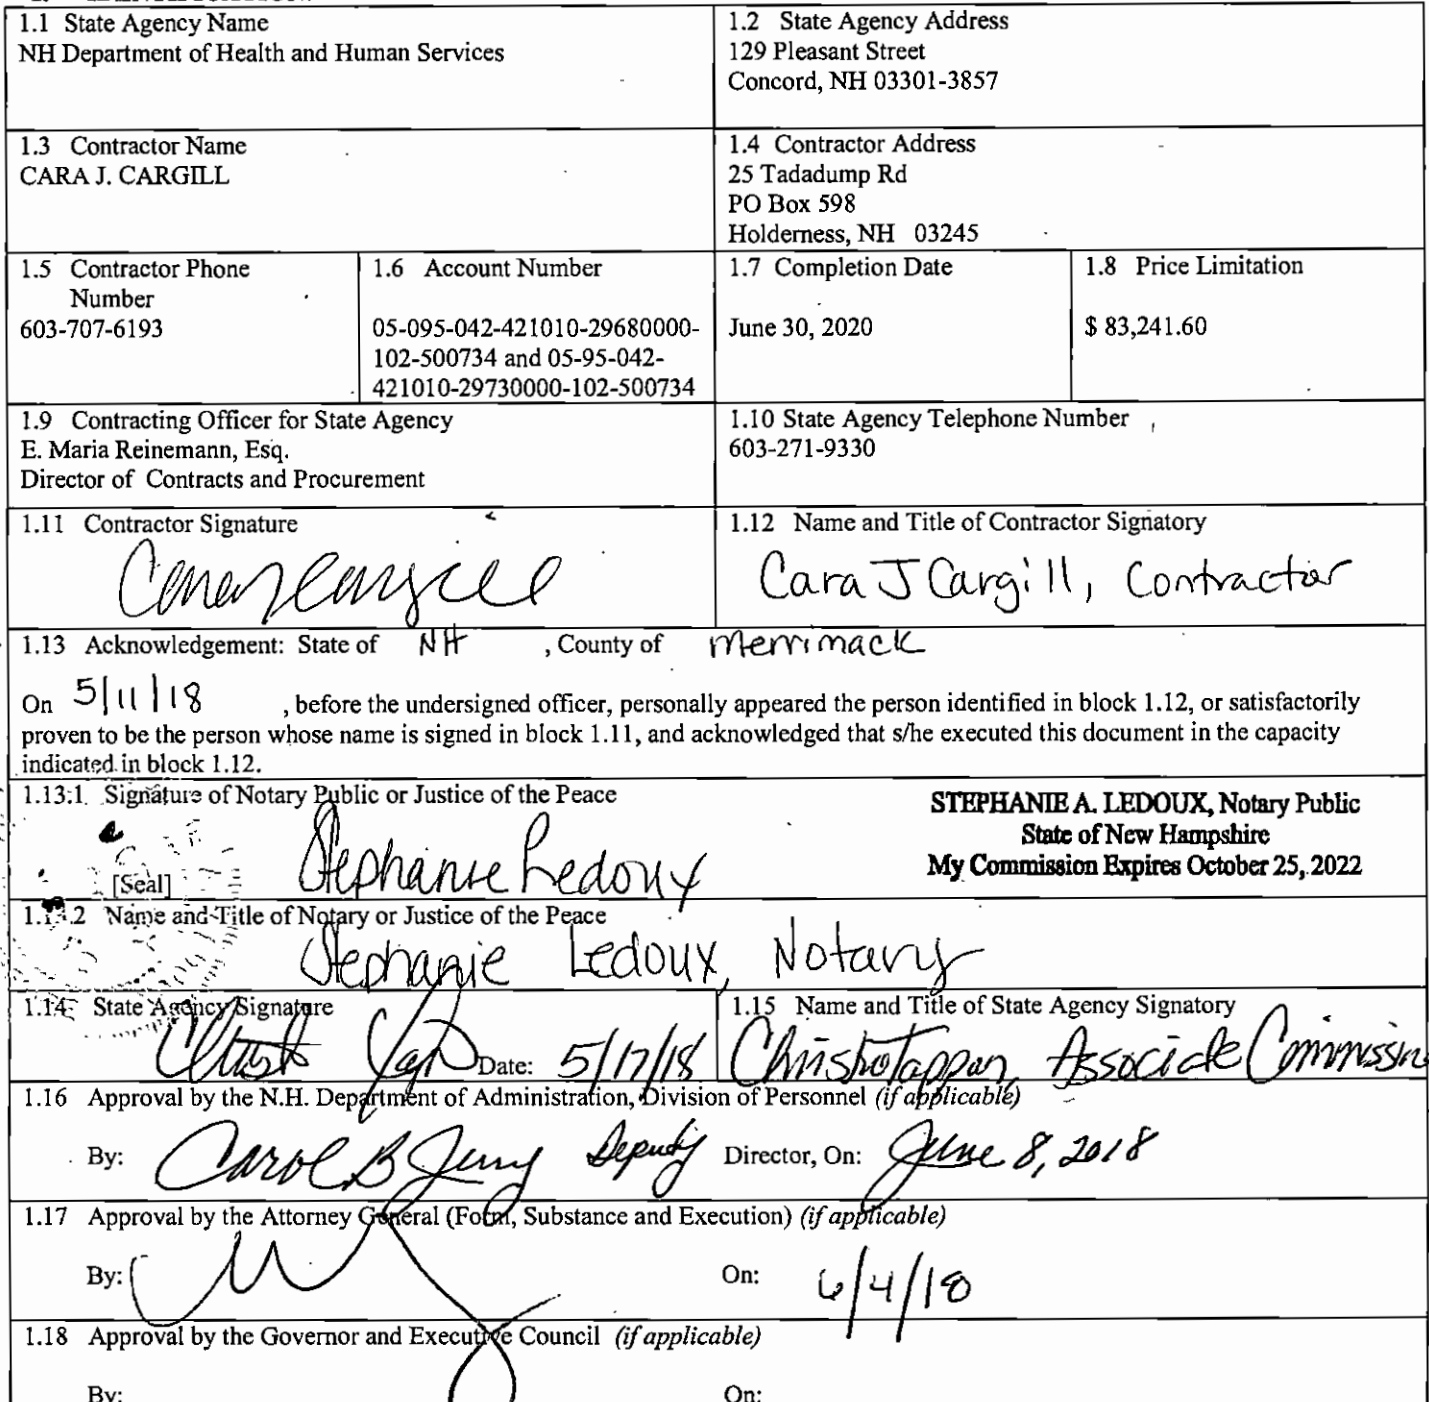 1.1 State Agency Name
NH Department of Health and Human Services
1.2 State Agency Address
129 Pleasant Street
Concord, NH 03301-3857
1.3 Contractor Name
CARA J. CARGILL
1.4 Contractor Address
25 Tadadump Rd
PO Box 598
Holderness, NH 03245
1.5 Contractor Phone
Number
603-707-6193
1.6 Account Number
05-095-042-421010-29680000-
102-500734 and 05-95-042-
421010-29730000-102-500734
1.7 Completion Date
June 30, 2020
1.8 Price Limitation
$ 83,241.60
1.9 Contracting Officer for State Agency
E. Maria Reinemann, Esq.
Director of Contracts and Procurement
1.10 State Agency Telephone Number
603-271-9330
1.11 Contractor Signature
1.12 Name and Title of Contractor Signatory
Cara J Cargill, Contractor
1.13 Acknowledgement: State of NH , County of Merrimack
On 5/11/18 , before the undersigned officer, personally appeared the person identified in block 1.12, or satisfactorily
proven to be the person whose name is signed in block 1.11, and acknowledged that s/he executed this document in the capacity
indicated in block 1.12.
1.13.1 Signature of Notary Public or Justice of the Peace
STEPHANIE A. LEDOUX, Notary Public
State of New Hampshire
My Commission Expires October 25, 2022
Stephanie Ledoux
[Seal]
1.13.2 Name and Title of Notary or Justice of the Peace
Stephanie Ledoux, Notary
1.14 State Agency Signature
Date: 5/17/18
1.15 Name and Title of State Agency Signatory
Associate Commission
1.16 Approval by the N.H. Department of Administration, Division of Personnel (if applicable)
By: Carol B Deputy Director, On: June 8, 2018
1.17 Approval by the Attorney General (Form, Substance and Execution) (if applicable)
By: On: 6/4/18
1.18 Approval by the Governor and Executive Council (if applicable)
By: On: